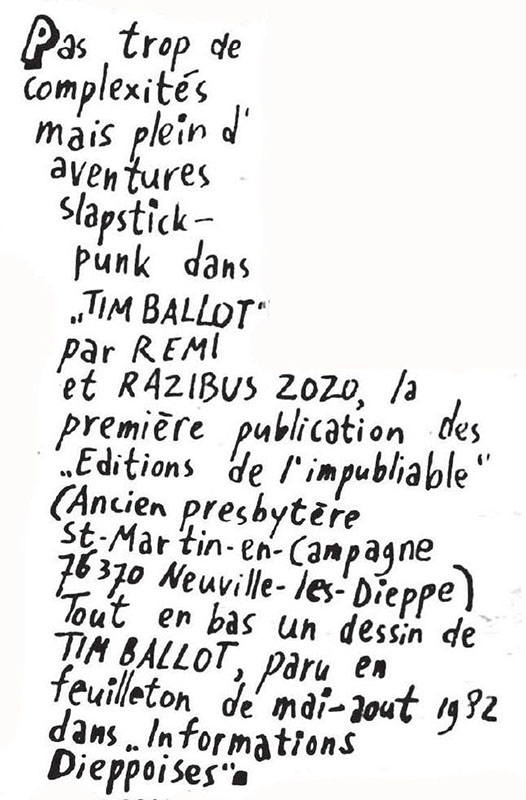 Pas trop de
complexités
mais plein d'
aventures
slapstick-
punk dans
„TIM BALLOT"
par REMI
et RAZIBUS ZOZO, la
première publication des
„Editions de l'impubliable"
(Ancien presbytère
St-Martin-en-Campagne
76370 Neuville-les-Dieppe)
Tout en bas un dessin de
TIM BALLOT, paru en
feuilleton de mai-aout 1982
dans „Informations
Dieppoises".